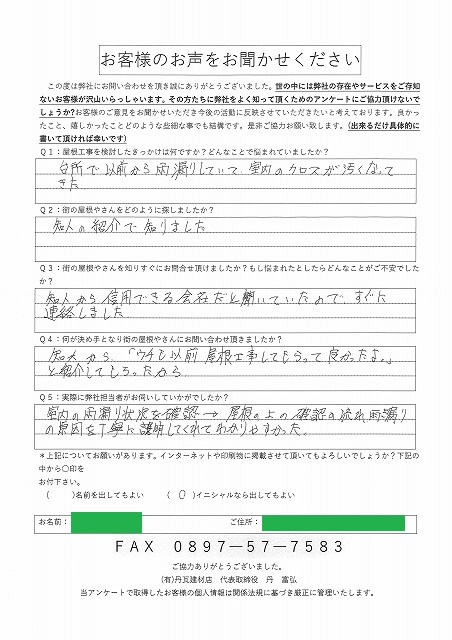 お客様のお声をお聞かせください
この度は弊社にお問い合わせを頂き誠にありがとうございました。世の中には弊社の存在やサービスをご存知
ないお客様が沢山いらっしゃいます。その方たちに弊社をよく知って頂くためのアンケートにご協力頂けないで
しょうか?お客様のご意見をお聞かせいただき今後の活動に反映させていただきたいと考えております。良かっ
たこと、嬉しかったことどのような些細な事でも結構です。是非ご協力お願い致します。(出来るだけ具体的に
書いて頂ければ幸いです)
Q1:屋根工事を検討したきっかけは何ですか?どんなことで悩まれていましたか?
台所で以前から雨漏りしていて、室内のクロスが汚くなって
きた。
Q2:街の屋根やさんをどのように探しましたか?
知人の紹介で知りました
Q3:街の屋根やさんを知りすぐにお問合せ頂けましたか?もし悩まれたとしたらどんなことがご不安でした
か?
知人から信用できる会社だと聞いていたので、すぐに
連絡しました。
Q4:何が決め手となり街の屋根やさんにお問い合わせ頂きましたか?
知人から、「ウチも以前屋根工事してもらって良かったよ。」
と紹介してもらったから。
Q5:実際に弊社担当者がお伺いしていかがでしたか?
室内の雨漏り状況を確認→屋根の上の確認の流れ、雨漏り
の原因を丁寧に説明してくれてわかりやすかった。
*上記についてお願いがあります。インターネットや印刷物に掲載させて頂いてもよろしいでしょうか?下記の
中から〇印を
お付下さい。
( )名前を出してもよい ( 〇 )イニシャルなら出してもよい
お名前: ご住所:
FAX 0897-57-7583
ご協力ありがとうございました。
(有)丹瓦建材店 代表取締役 丹 富弘
当アンケートで取得したお客様の個人情報は関係法規に基づき厳正に管理いたします。